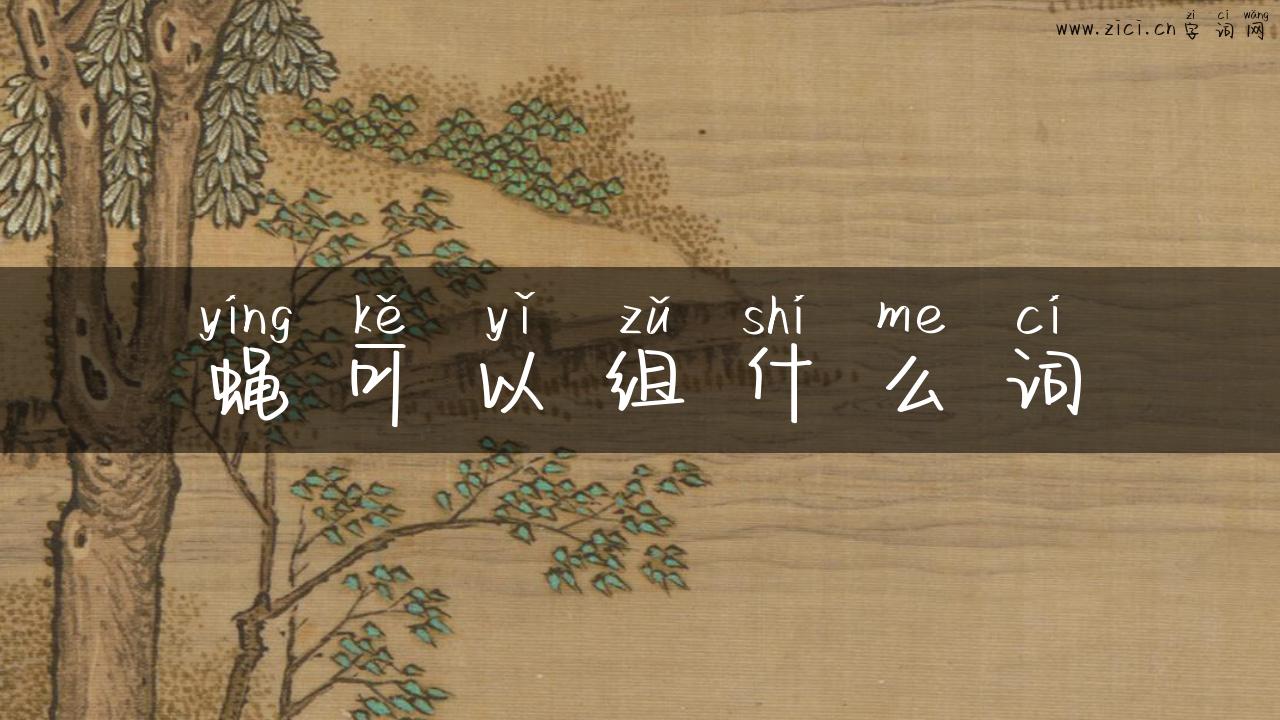 zì cí wǎng
www.zici.cn 字词网
yíng kě yǐ zǔ shí me cí
蝇可以组什么词